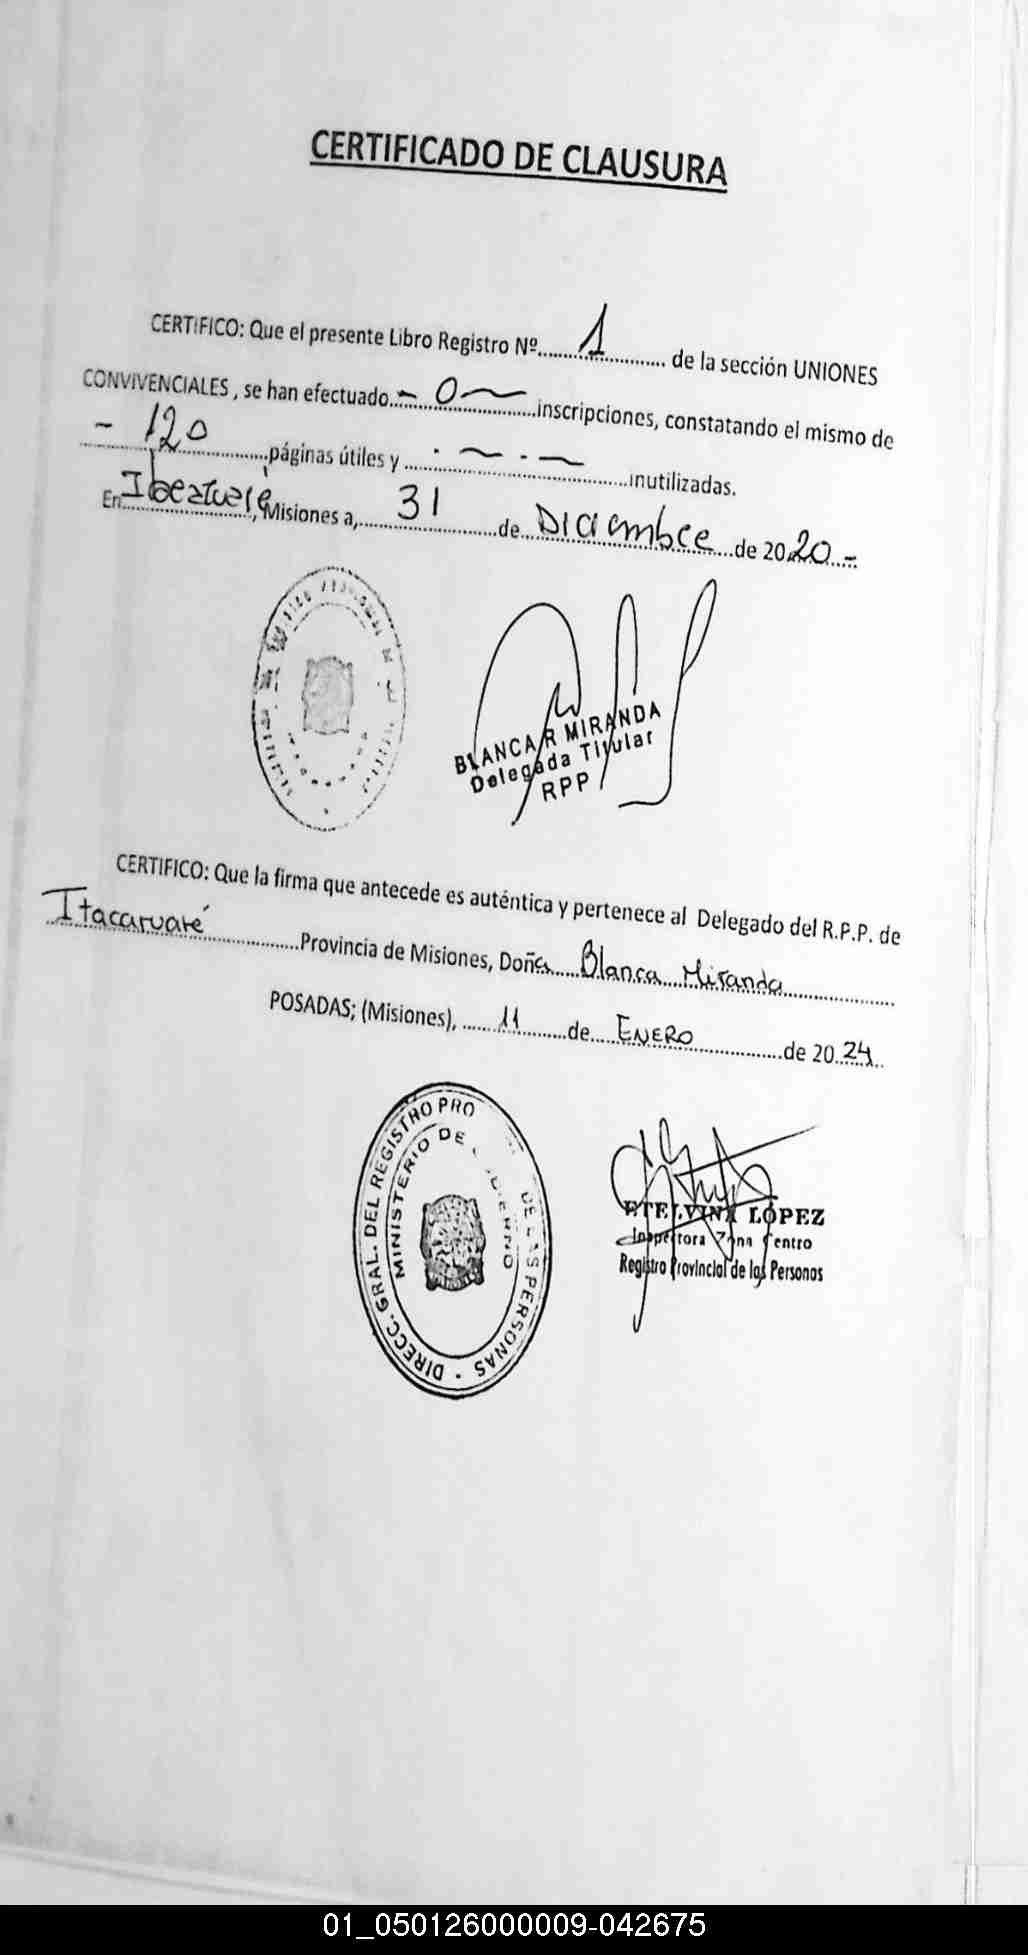 CERTIFICADO DE CLAUSURA
CERTIFICO: Que el presente Libro Registro Nº.............1............. de la sección UNIONES
CONVIVENCIALES , se han efectuado..- 0 ~..............inscripciones, constatando el mismo de
- 120 ..............páginas útiles y ..............................inutilizadas.
En..............., Misiones a,......31.........de...Diciembre...de 2020.-
BLANCA R MIRANDA
Delegada Titular
RPP
CERTIFICO: Que la firma que antecede es auténtica y pertenece al Delegado del R.P.P. de
Itacaruaré..............Provincia de Misiones, Doña.....Blanca Miranda...............
POSADAS; (Misiones), .......11........de.....ENERO...............de 20.24..
DIRECC. GRAL. DEL REGISTRO PRO DE LAS PERSONAS
MINISTERIO DE
ETELVINA LÓPEZ
Inspectora Zona Centro
Registro Provincial de las Personas
01_050126000009-042675